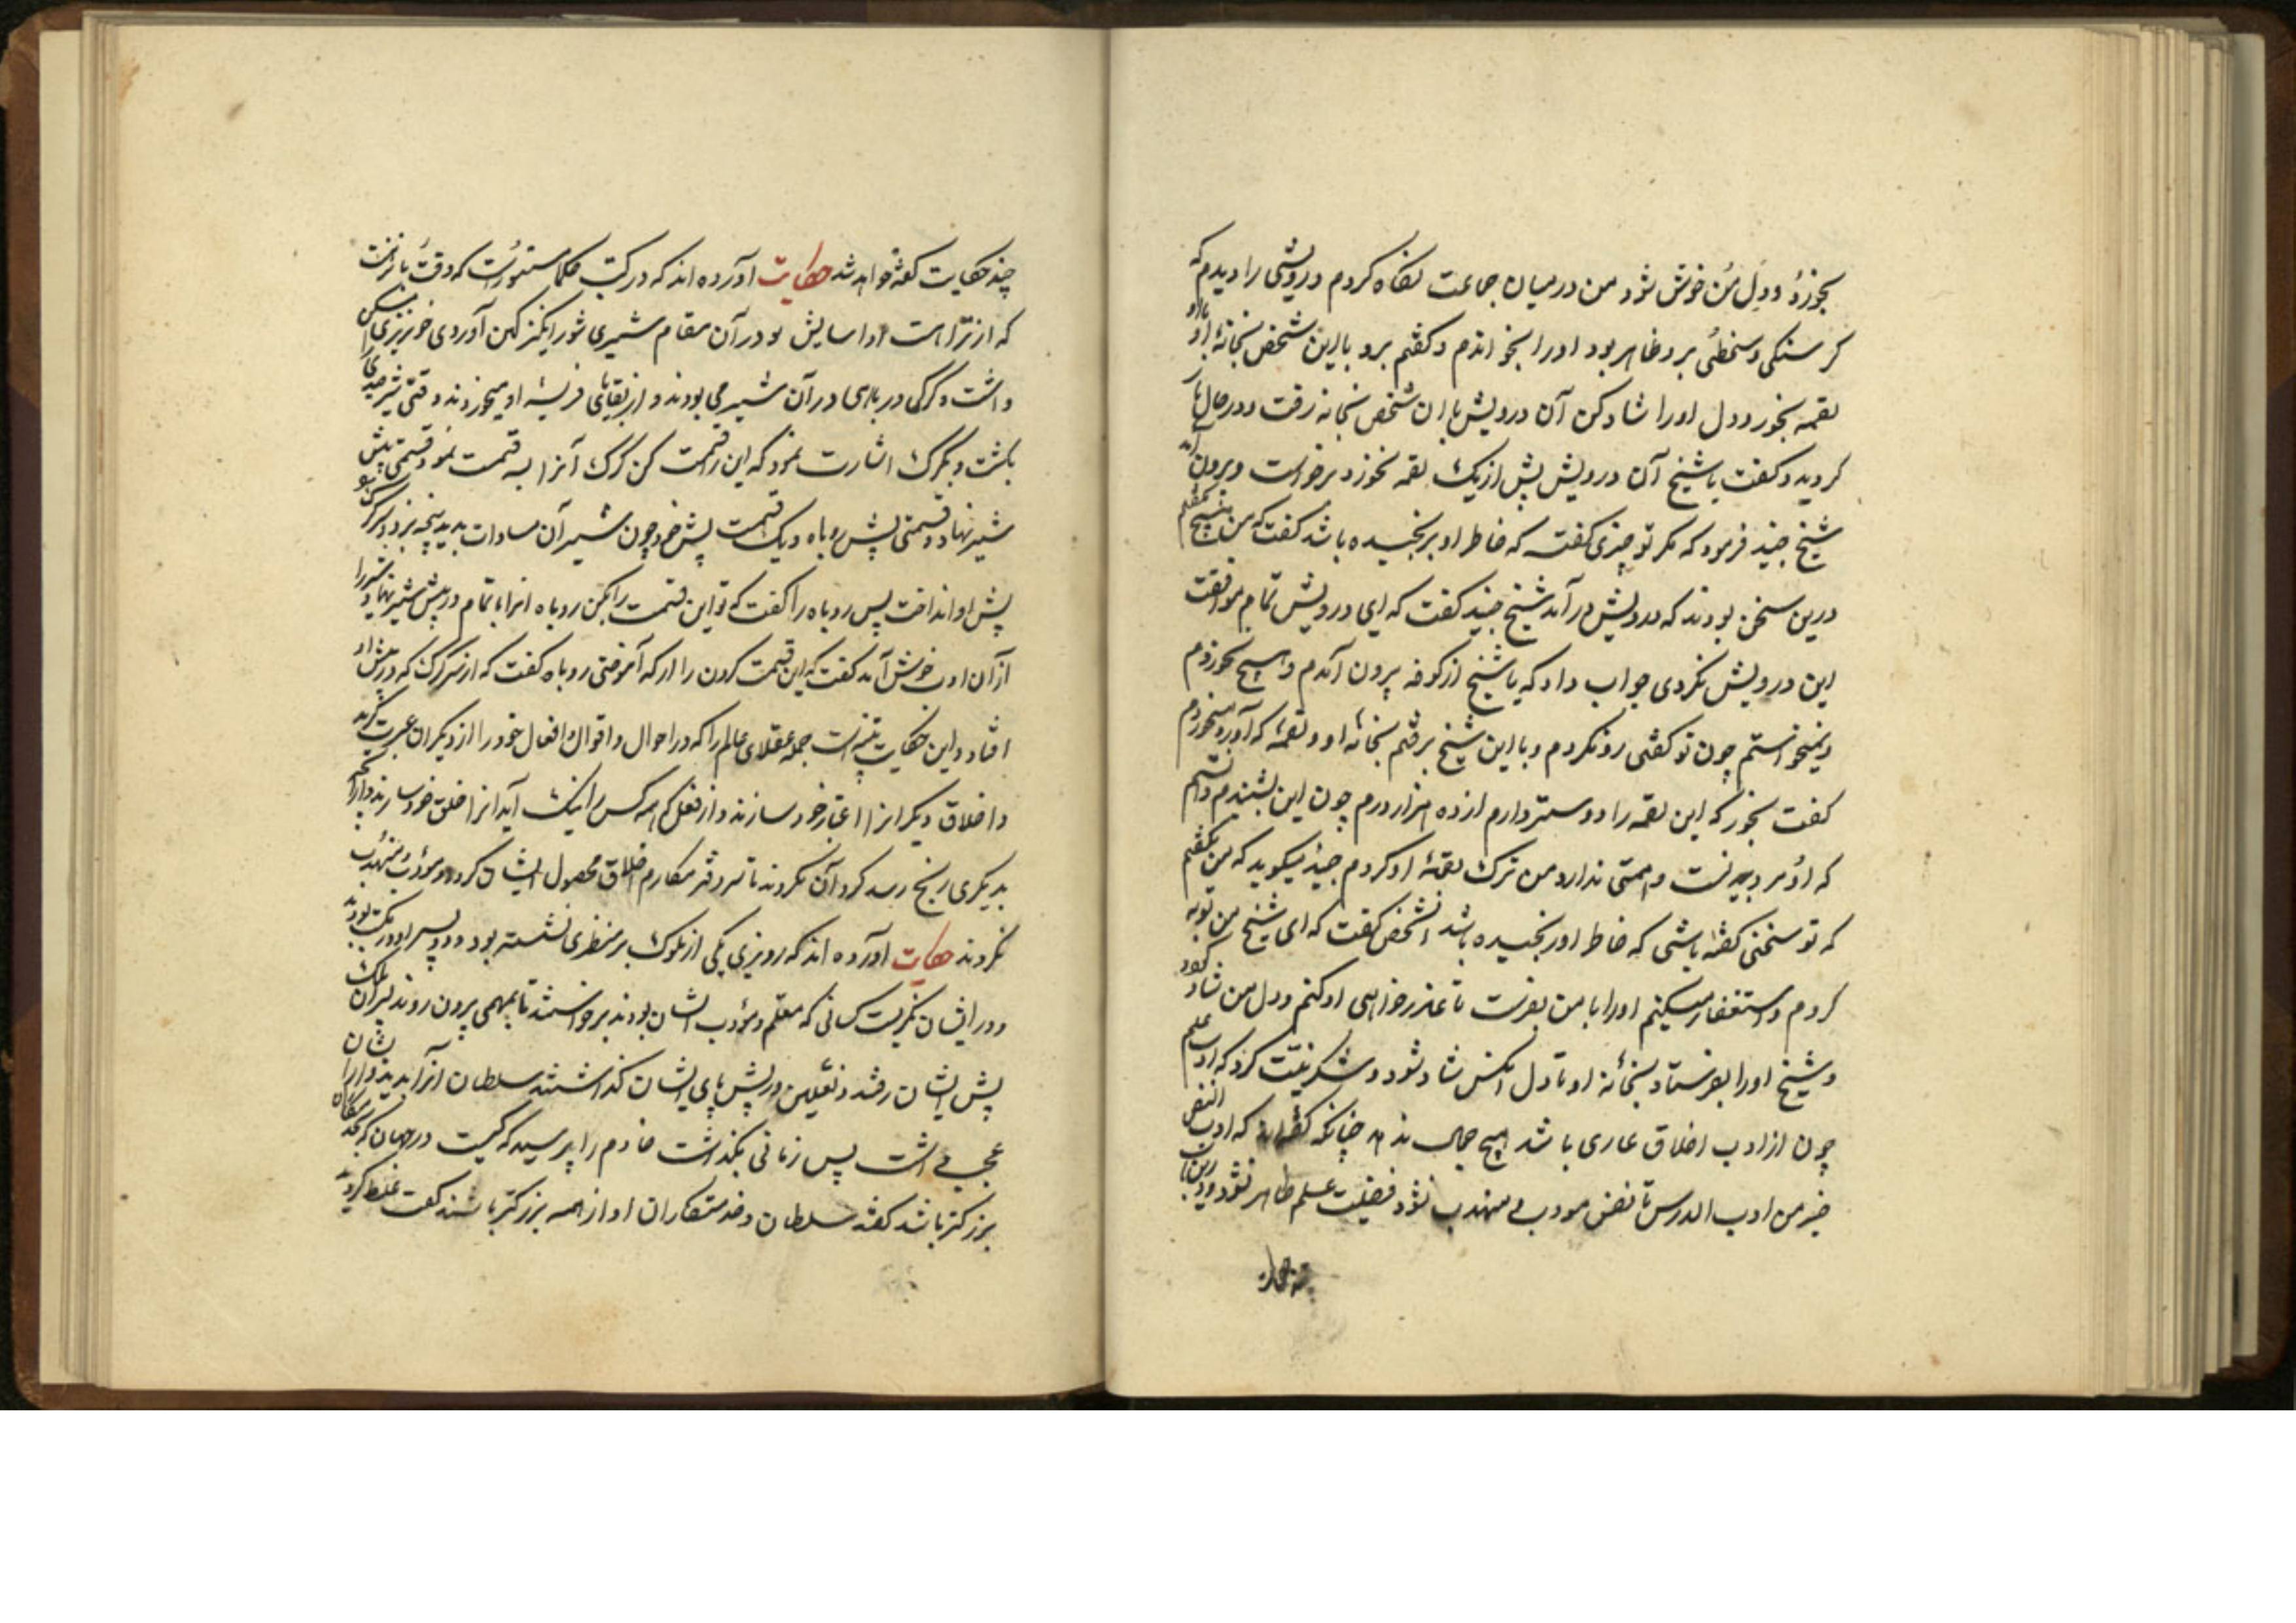 بخورد و دل من خوش شود من در میان جماعت نکاه کردم درویشی را دیدم که
کرسنکی و سخطی برو ظاهر بود اورا بخواندم و کفتم برو با این شخص بخانهٔ او و با او
لقمه بخور و دل اورا شاد کن آن درویش با ان شخص بخانه رفت و در حال باز
کردید و کفت یا شیخ آن درویش پیش از یک لقمه نخورد برخواست و بیرون آمد
شیخ جنید فرمود که مکر تو چیزی کفته که خاطر او برنجیده باشد کفت که من هیچ نکفتم
درین سخن بودند که درویش در آمد شیخ جنید کفت که ای درویش تمام موافقت
این درویش نکردی جواب داد که یا شیخ از کوفه بیرون آمدم و هیچ نخوردم
و نمیخواستم چون تو کفتی رد نکردم و با این شیخ برفتم بخانه او و لقمهٔ که آورد میخوردم
کفت بخور که این لقمه را دوستر دارم از ده هزار درم چون این بشنیدم دانستم
که او مرد نیست و همتی ندارد من ترک لقمهٔ او کردم جنید میکوید که من نکفتم
که تو سخنی کفته باشی که خاطر او رنجیده باشد انشخص کفت که ای شیخ من توبه
کردم و استغفار میکنم اورا با من بفرست تا عذرخواهی او کنم و دل من شاد کردد
و شیخ اورا بفرستاد بخانه او تا دل انکس شاد شود و شکر نیت کرد که ادب علم
چون از ادب اخلاق عاری باشد هیچ جمال ندهد چنانکه کفته‌اند که ادب النفس
خیر من ادب الدرس تا نفس مودب و مهذب نشود فضیلت علم ظاهر نشود و درین باب
چند حکایت کفته خواهد شد حکایت آورده اند که در کتب حکما مستورست که وقتی
که از نزاهت او اسایش بود در آن مقام شیری شور انکیز کین آوری خونریزی مسکن
داشت و کرکی و روباهی در آن شیر می بودند و از بقایای فریسه او میخوردند وقتی شیر صیدی
بکشت و بکرک اشارت نمود که این را قسمت کن کرک آنرا به قسمت نمود قسمتی پیش
شیر نهاد و قسمتی پیش روباه و یک قسمت پیش خود چون شیر آن مساوات بدید پنجه بزد و سر کرک
پیش او انداخت پس روباه را کفت که تو این قسمت را بکن روباه انرا بتمام در پیش شیر نهاد
از آن ادب خوش آمد کفت که این قسمت کردن را از که آموختی روباه کفت که از سر کرک که در پیش او
افتاد و این حکایت تنبیه است جمله عقلای عالم را که در احوال و اقوال و افعال خود را از دیکران عبرت کیرند
و اخلاق دیکر انرا اعتبار خود سازند و از فعل که همه کس را نیک آید انرا خلق خود سازند و از آنچه
بدیکری رنج رسد کرد آن نکردند تا سر دفتر مکارم اخلاق محصول ایشان کردد و مؤدب و مهذب
کردند حکایت آورده اند که روزی یکی از ملوک بر منظری نشسته بود و دو پسر او در مکتب بودند
و در ایشان نکریست کسانی که معلم و مؤدب ایشان بودند برخواستند تا بمهمی بیرون روند پسران ملک
پیش ایشان رفتند و نعلین در پیش پای ایشان کذاشتند سلطان انرا بدید و از ایشان
عجب داشت پس زمانی بکذاشت خادم را پرسید که کیست در جهان که
بزرکتر باشد کفتند سلطان و خدمتکاران او از همه بزرکتر باشند کفت غلط کردید